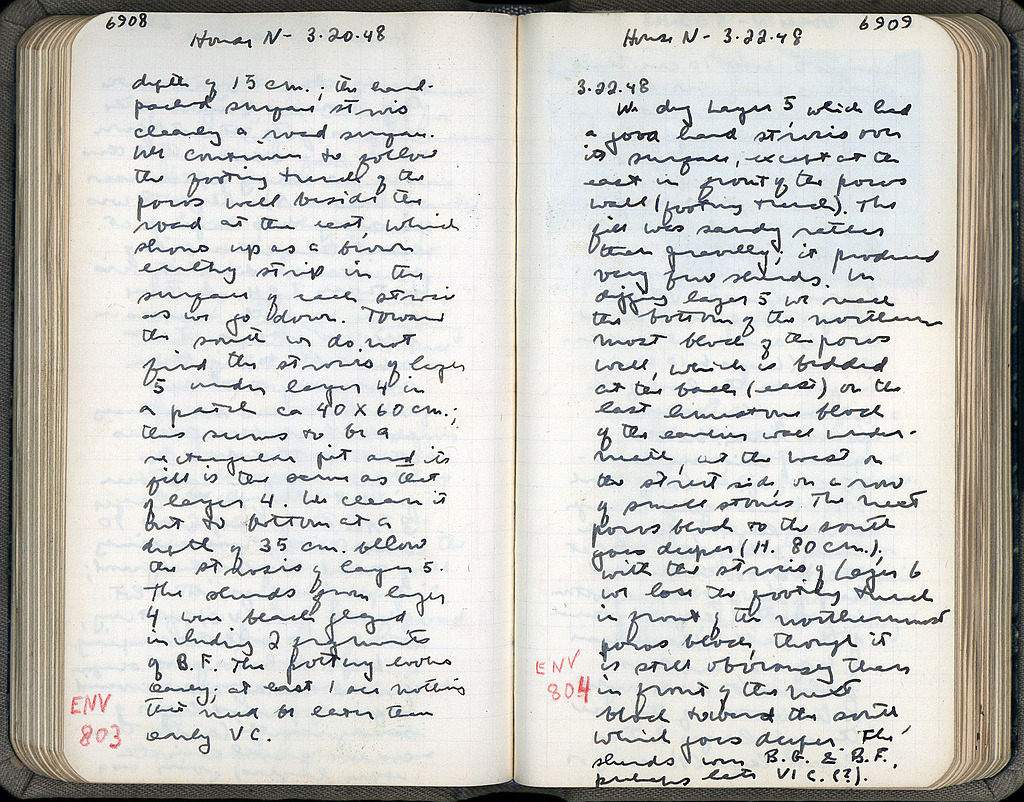 6908
House N- 3.20.48
depth of 15 cm.; the hard-
packed surface, strosis
clearly a road surface.
We continue to follow
the footing trench of the
poros wall beside the
road at the east, which
shows up as a brown
earthy strip in the
surface of each strosis
as we go down. Toward
the south we do not
find the strosis of layer
5 under layer 4 in
a patch ca 40 x 60 cm.;
this seems to be a
rectangular pit and its
fill is the same as that
of layer 4. We clean it
out to bottom at a
depth of 35 cm. below
the strosis of layer 5.
The sherds from layer
4 were black glazed
including 2 fragments
of B.F. The pottery looks
early; at least I see nothing
that need be later than
early V C.
ENV
803
6909
House N- 3.22.48
3.22.48
We dug Layer 5 which had
a good hard strosis over
its surface, except at the
east in front of the poros
wall (footing trench). The
fill was sandy rather
than gravelly; it produced
very few sherds. In
digging layer 5 we reach
the bottom of the northern
most block of the poros
wall, which is bedded
at the back (east) on the
last limestone block
of the earlier wall under-
neath, at the west on
the street side, on a row
of small stones. The next
poros block to the south
goes deeper (H. 80 cm.).
With the strosis of Layer 6
we lose the footing trench
in front of the northernmost
poros block, though it
is still obviously there
in front of the next
block toward the south
which goes deeper. The
sherds were B.G. & B.F.,
perhaps late VI C. (?).
ENV
804